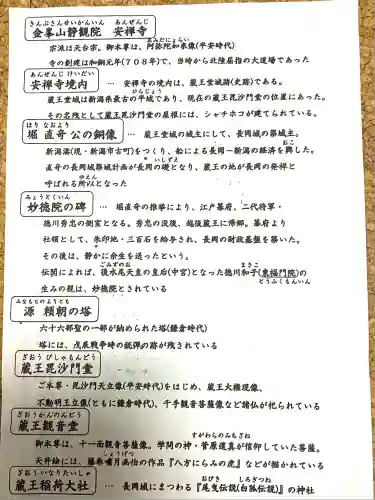 きんぷさんせいかんいん あんぜんじ
金峯山静観院 安禅寺
宗派は天台宗。御本尊は、阿弥陀如来像(平安時代)
あみだにょらい
寺の創建は和銅元年(708年)で、当時から北陸屈指の大道場であった
あんぜんじ けいだい
安禅寺境内 … 安禅寺の境内は、蔵王堂城跡(史跡)である。
ひらじょう
蔵王堂城は新潟県最古の平城であり、現在の蔵王毘沙門堂の位置にあった。
その名残として蔵王毘沙門堂の屋根には、シャチホコが建てられている。
ほり なおより
堀 直竒 公の銅像 … 蔵王堂城の城主にして、長岡城の築城主。
おこ
新潟湊(現・新潟市古町)をつくり、船による長岡ー新潟の経済を興した。
いしずえ
直竒の長岡城築城計画が長岡の礎となり、蔵王の地が長岡の発祥と
ゆえん
呼ばれる所以となった
みょうとくいん
妙徳院の碑 … 堀直竒の指挙により、江戸幕府、二代将軍・
徳川秀忠の側室となる。秀忠の没後、越後蔵王に帰郷。幕府より
社領として、朱印地・三百石を給与され、長岡の財政基盤を築いた。
その後は、静かに余生を送ったという。
ごみずのお まさこ
伝聞によれば、後水尾天皇の皇后(中宮)となった徳川和子(東福門院)の
とうふくもんいん
生みの親は、妙徳院とされている
みなもとのよりとも
源 頼朝の塔
六十六部聖の一部が納められた塔(鎌倉時代)
塔には、戊辰戦争時の銃弾の跡が残されている
ざおう びしゃもんどう
蔵王毘沙門堂
ご本尊・毘沙門天立像(平安時代)をはじめ、蔵王大権現像、
不動明王立像(ともに鎌倉時代)、千手観音菩薩像など諸仏が祀られている
ざおうかんのんどう
蔵王観音堂
すがわらのみちざね
御本尊は、十一面観音菩薩像。学問の神・菅原道真が信仰していた菩薩。
しょうげつ
天井絵には、藤巻嘯月画伯の作品『八方にらみの虎』などが描かれている
ざおういなりたいしゃ
蔵王稲荷大社 … 長岡城にまつわる『尾曳伝説(白狐伝説)』の神社
おびき しろぎつね